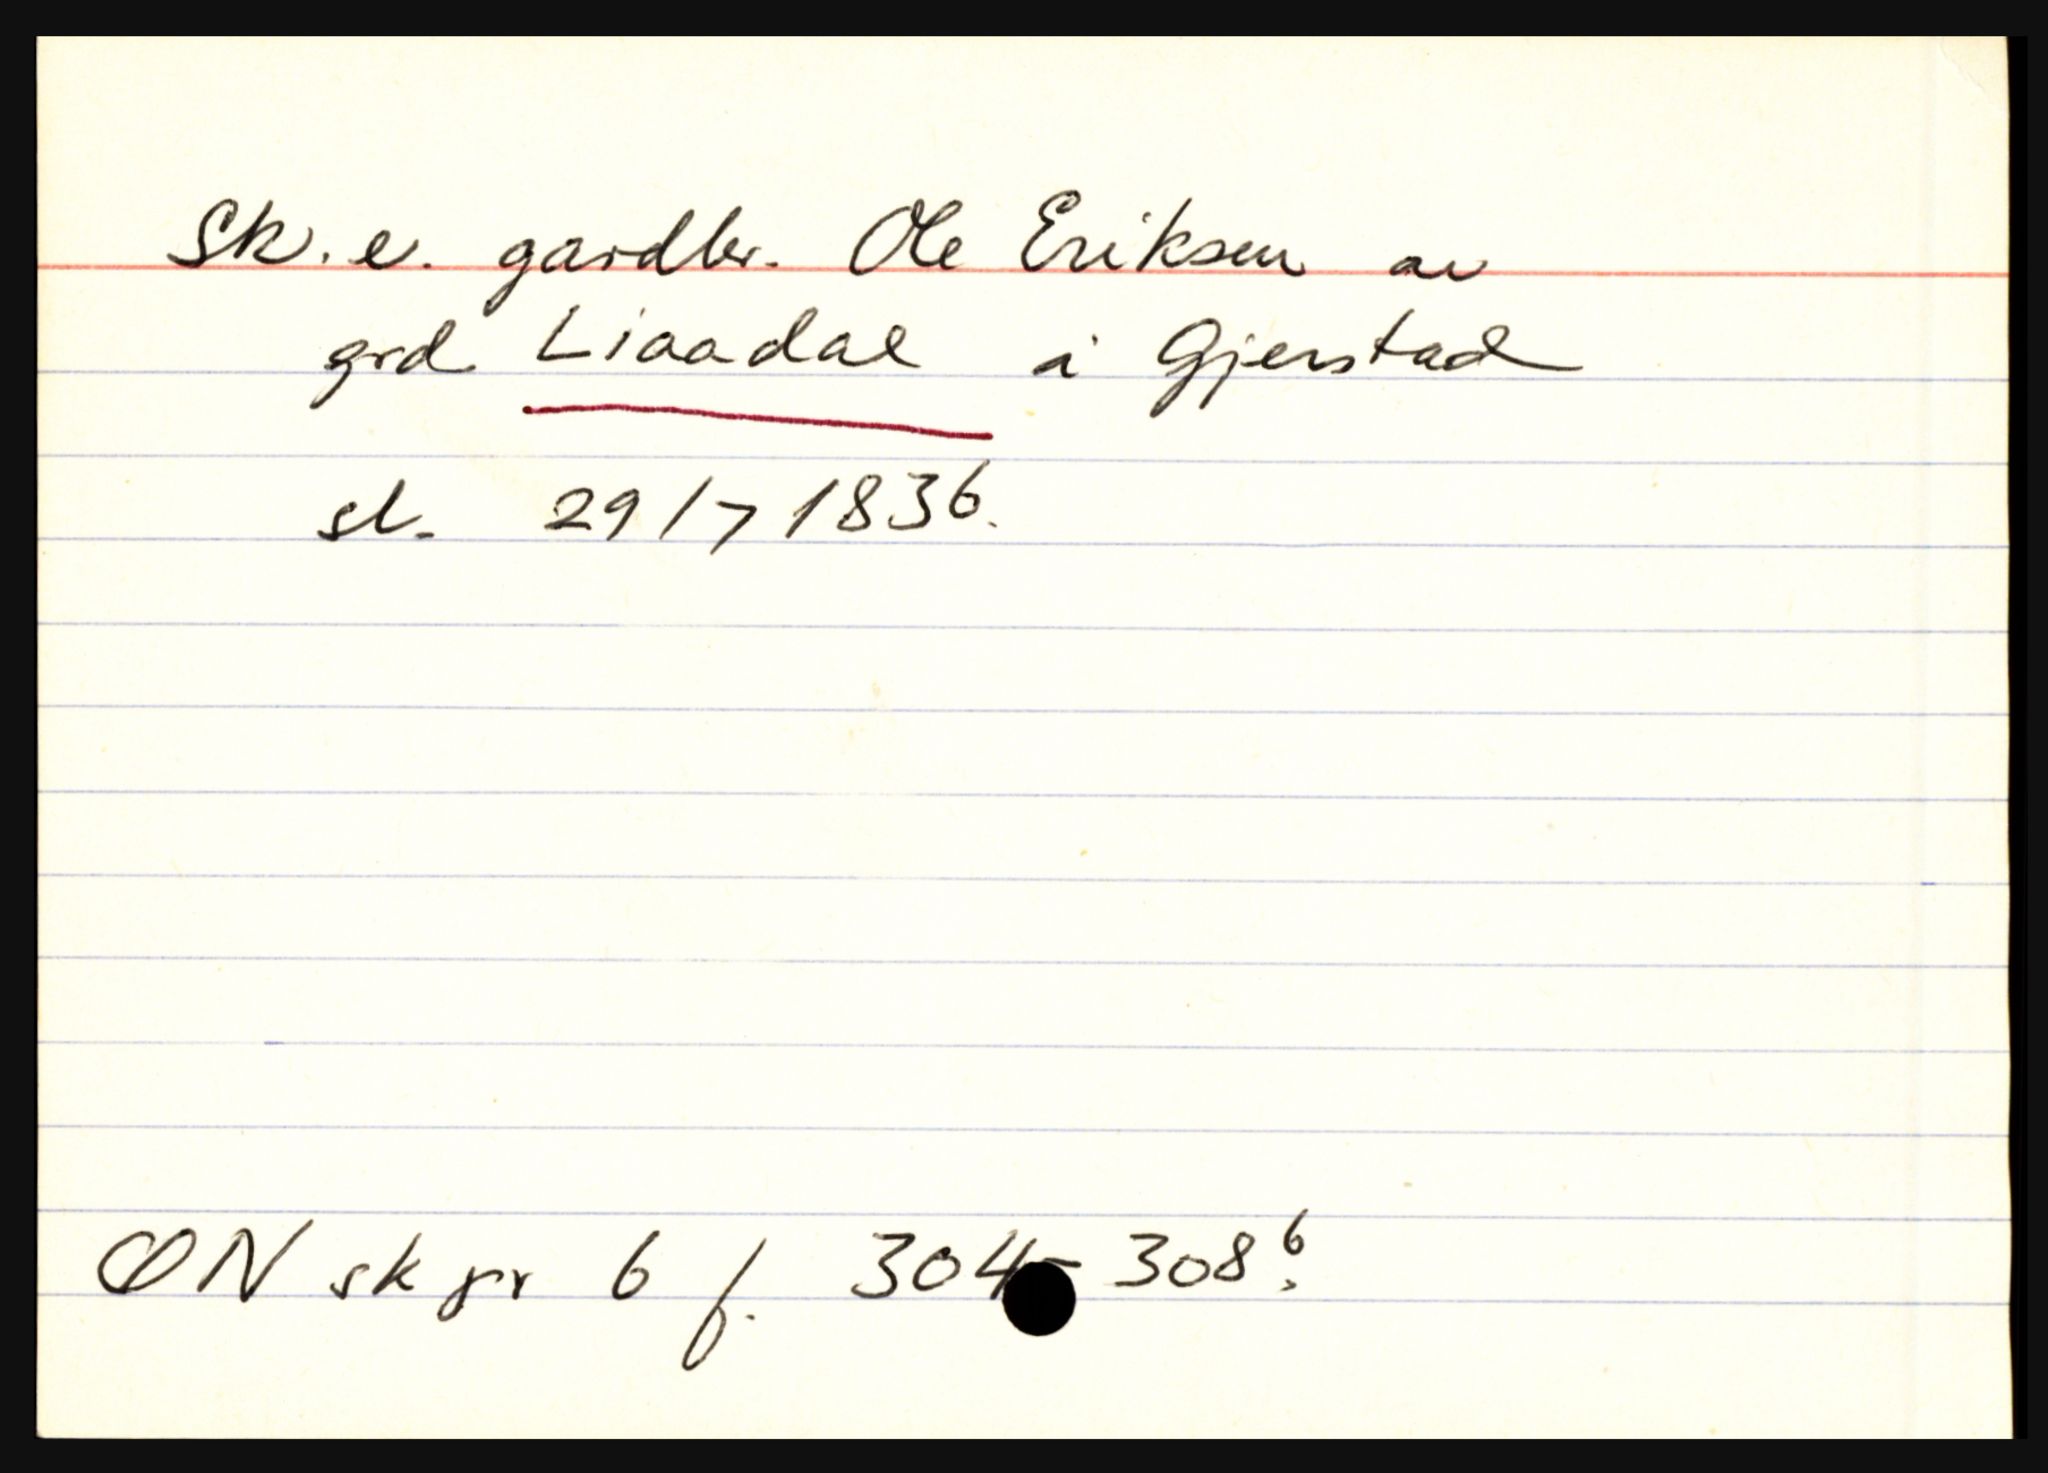 Sk. e. gardbr. Ole Eriksen av
grd Liaadal i Gjerstad
sl. 29/7 1836.
ØN skpr 6 f. 304-308b.